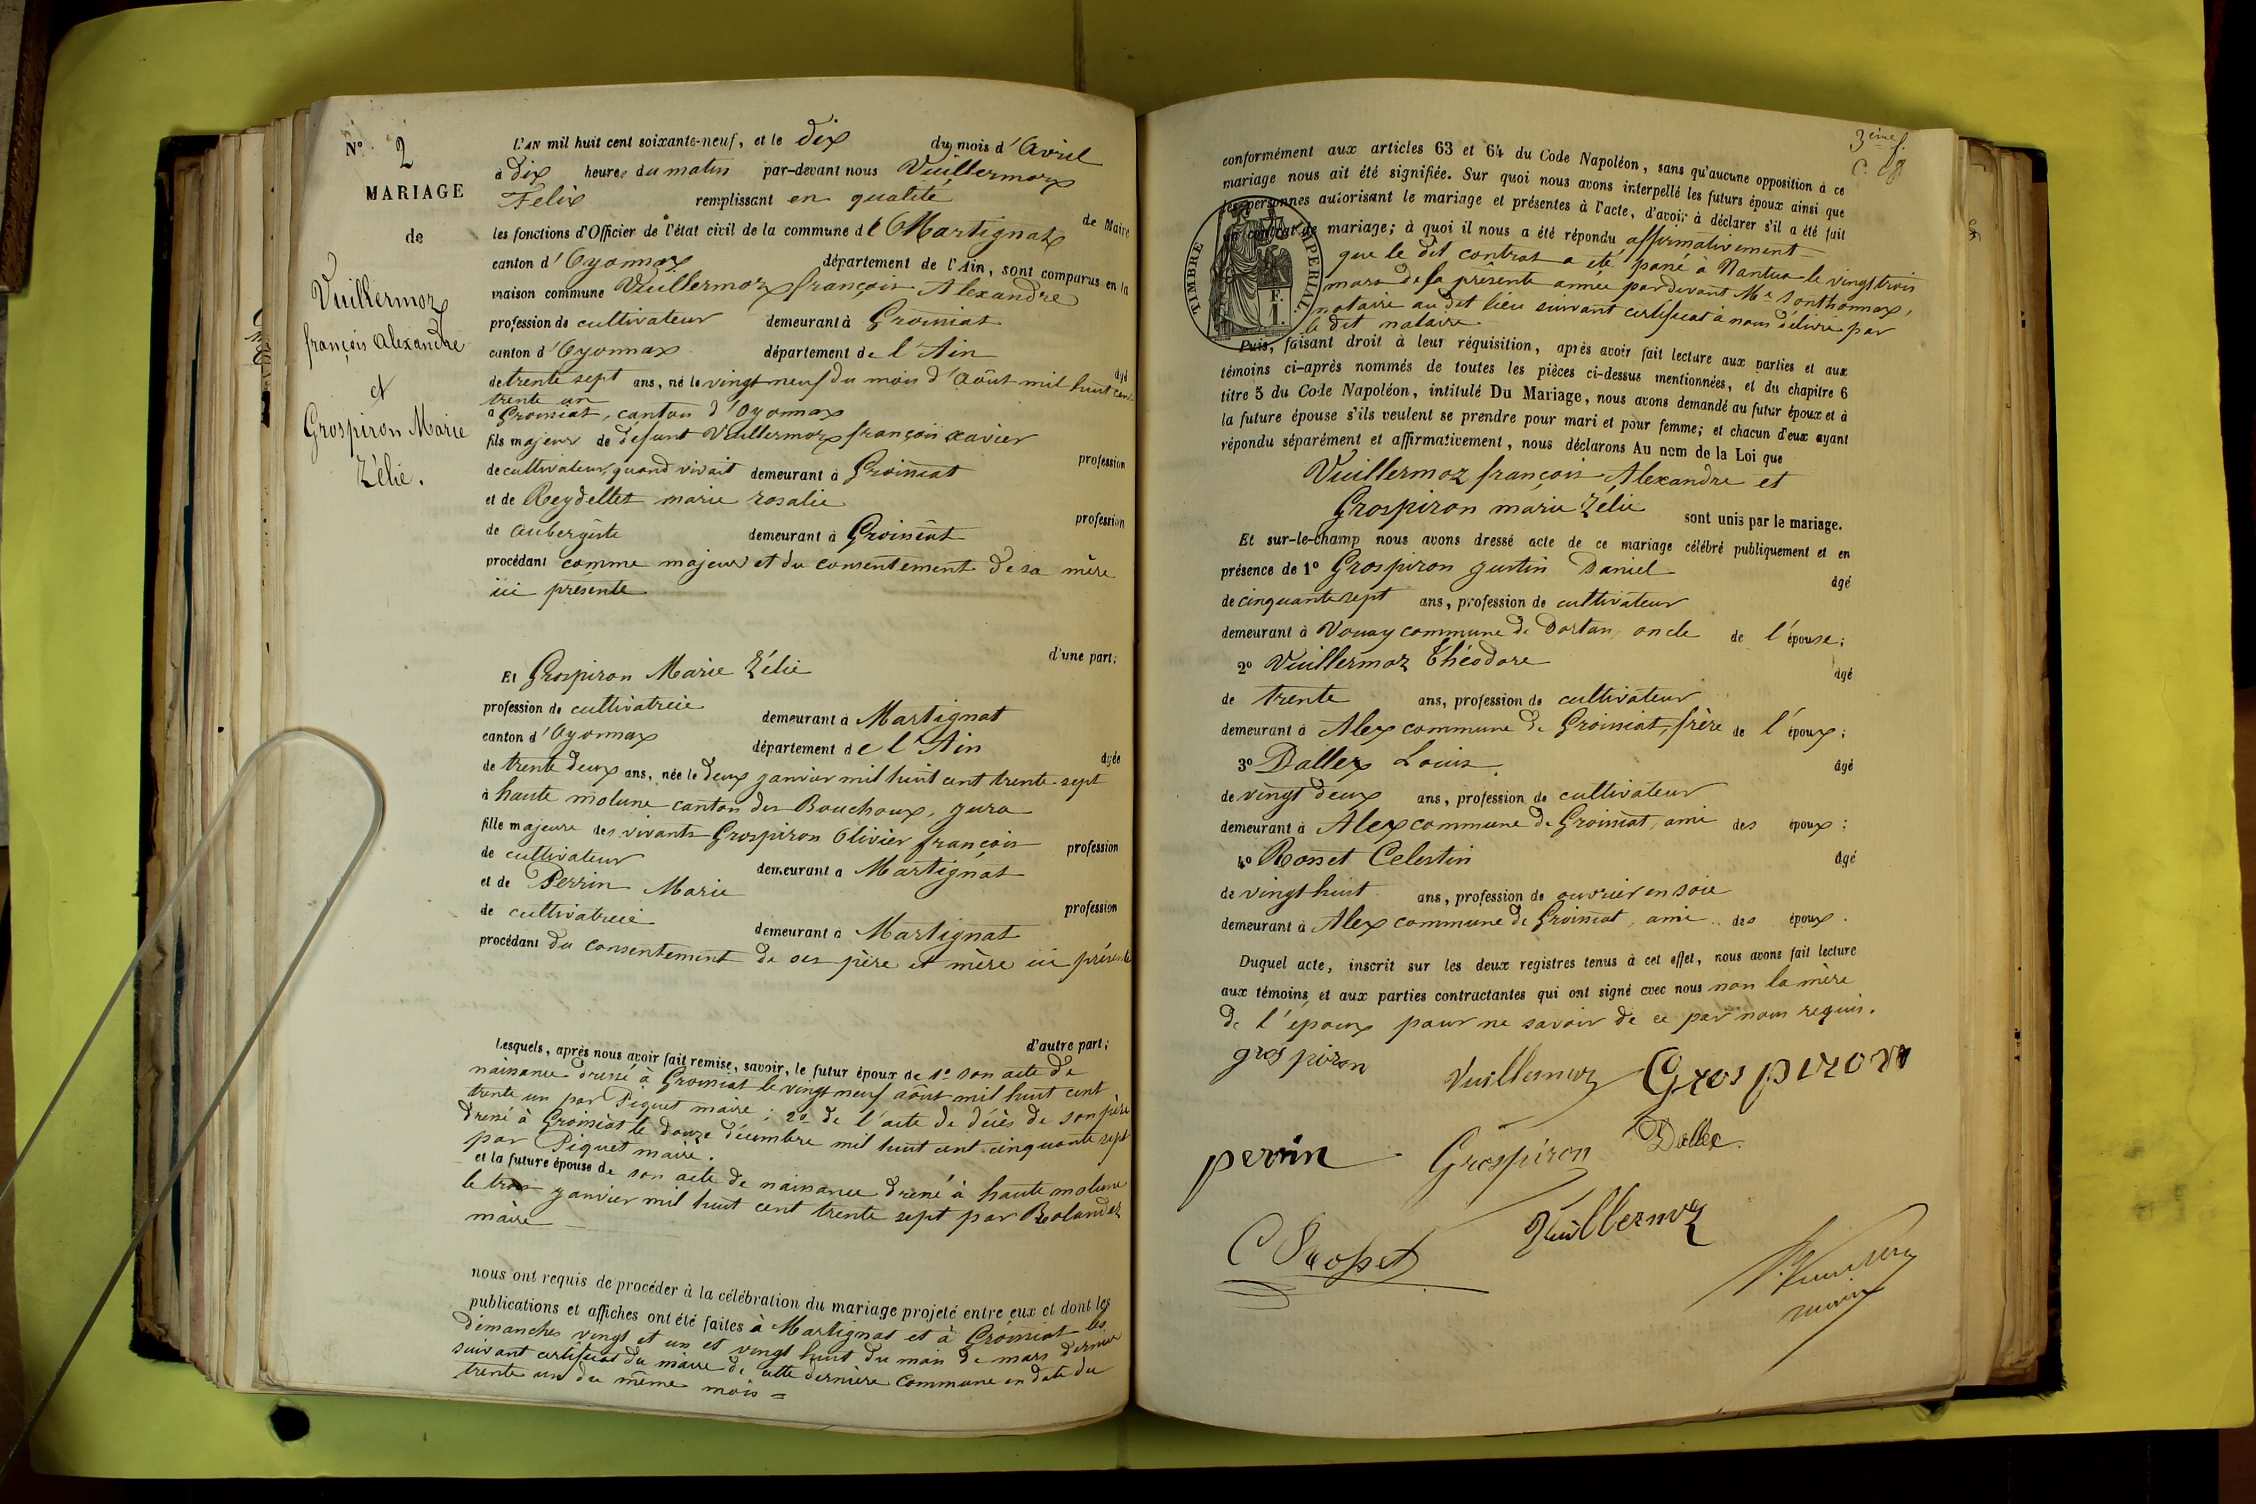 N° 2
MARIAGE
de
Vuillermoz
françois Alexandre
et
Grospiron Marie
Zélie.
L'AN mil huit cent soixante-neuf, et le dix du mois d'Avril
à dix heures du matin par-devant nous Vuillermoz
Felix remplissant en qualité de Maire
les fonctions d'Officier de l'état civil de la commune de Martignat
canton d'Oyonnax département de l'Ain, sont comparus en la
maison commune Vuillermoz françois Alexandre
profession de cultivateur demeurant à Groissiat
canton d'Oyonnax département de l'Ain âgé
de trente sept ans, né le vingt neuf du mois d'Août mil huit cent
trente un
à Groissiat, canton d'Oyonnax
fils majeur de défunt Vuillermoz françois xavier profession
de cultivateur, quand vivait demeurant à Groissiat
et de Reydellet marie rosalie profession
de aubergiste demeurant à Groissiat
procédant comme majeur et du consentement de sa mère
ici présente
d'une part;
Et Grospiron Marie Zélie
profession de cultivatrice demeurant à Martignat
canton d'Oyonnax département de l'Ain âgée
de trente deux ans, née le deux janvier mil huit cent trente sept
à haute molune canton des Bouchoux, jura
fille majeure des vivants Grospiron Olivier françois profession
de cultivateur demeurant à Martignat
et de Perrin Marie profession
de cultivatrice demeurant à Martignat
procédant du consentement de ses père et mère ici présents
d'autre part;
Lesquels, après nous avoir fait remise, savoir, le futur époux de 1° son acte de
naissance dressé à Groissiat le vingt neuf août mil huit cent
trente un par Piquet maire; 2° de l'acte de décès de son père
dressé à Groissiat le douze décembre mil huit cent cinquante sept
par Piquet maire.
et la future épouse de son acte de naissance dressé à haute molune
le trois janvier mil huit cent trente sept par Rolandez
maire
nous ont requis de procéder à la célébration du mariage projeté entre eux et dont les
publications et affiches ont été faites à Martignat et à Groissiat les
dimanches vingt et un et vingt huit du mois de mars dernier
suivant certificat du maire de cette dernière commune en date du
trente un du même mois =
3ème f.
conformément aux articles 63 et 64 du Code Napoléon, sans qu'aucune opposition à ce
mariage nous ait été signifiée. Sur quoi nous avons interpellé les futurs époux ainsi que
les personnes autorisant le mariage et présentes à l'acte, d'avoir à déclarer s'il a été fait
un contrat de mariage; à quoi il nous a été répondu affirmativement
que le dit contrat a été passé à Nantua le vingt trois
mars de la présente année pardevant Me Sonthonnax,
notaire au dit lieu suivant certificat à nous délivré par
le dit notaire
TIMBRE IMPÉRIAL.
F.
1.
Puis, faisant droit à leur réquisition, après avoir fait lecture aux parties et aux
témoins ci-après nommés de toutes les pièces ci-dessus mentionnées, et du chapitre 6
titre 5 du Code Napoléon, intitulé Du Mariage, nous avons demandé au futur époux et à
la future épouse s'ils veulent se prendre pour mari et pour femme; et chacun d'eux ayant
répondu séparément et affirmativement, nous déclarons Au nom de la Loi que
Vuillermoz françois Alexandre et
Grospiron marie Zélie sont unis par le mariage.
Et sur-le-champ nous avons dressé acte de ce mariage célébré publiquement et en
présence de 1° Grospiron justin Daniel âgé
de cinquante sept ans, profession de cultivateur
demeurant à Vouay commune de Dortan, oncle de l'épouse;
2° Vuillermoz Théodore âgé
de trente ans, profession de cultivateur
demeurant à Alex commune de Groissiat, frère de l'époux;
3° Dallex Louis âgé
de vingt deux ans, profession de cultivateur
demeurant à Alex commune de Groissiat, ami des époux;
4° Rosset Celestin âgé
de vingt huit ans, profession de ouvrier en soie
demeurant à Alex commune de Groissiat, ami des époux.
Duquel acte, inscrit sur les deux registres tenus à cet effet, nous avons fait lecture
aux témoins et aux parties contractantes qui ont signé avec nous non la mère
de l'époux pour ne savoir de ce par nous requis.
grospiron Vuillermoz Grospiron
perrin Grospiron Dallex
C Rosset Vuillermoz
maire